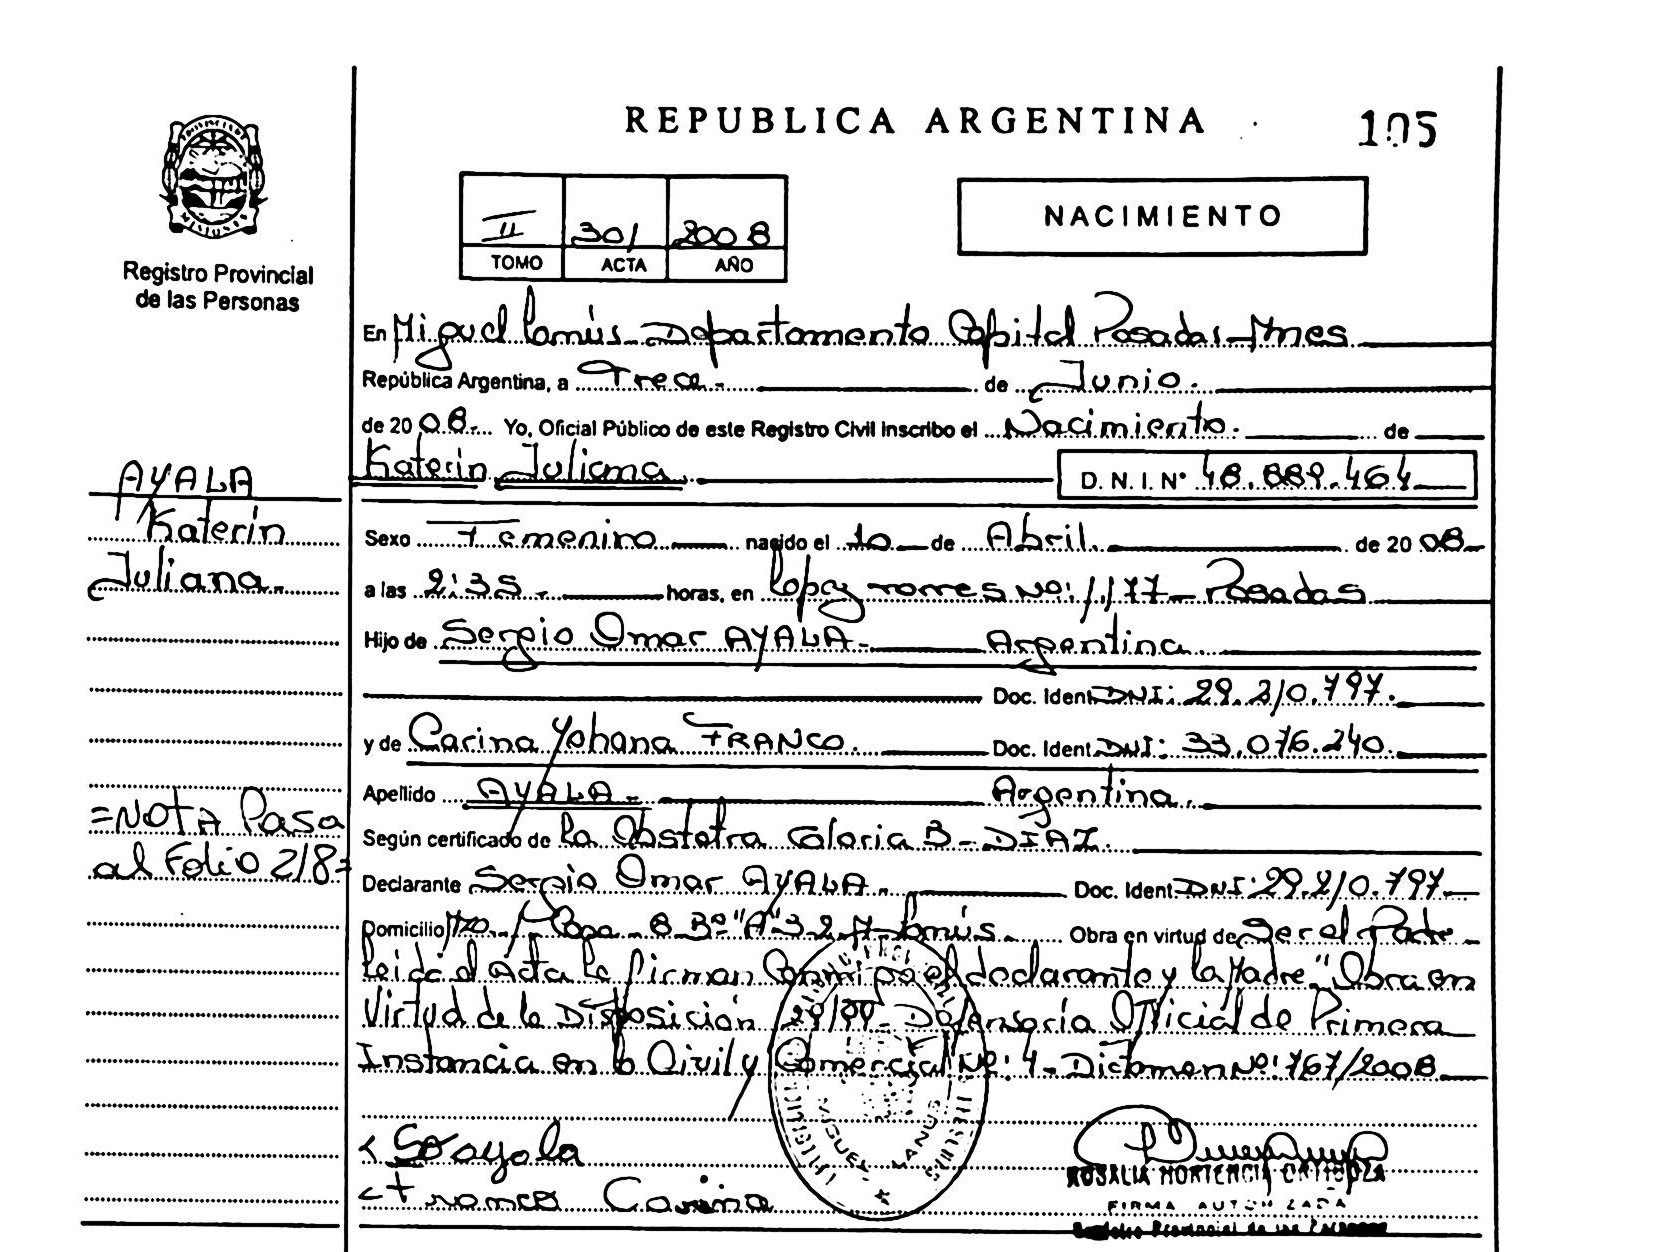 REPUBLICA ARGENTINA
105
Registro Provincial
de las Personas
II 301 2008
TOMO ACTA AÑO
NACIMIENTO
En Miguel Lanús - Departamento Capital Posadas - Mnes
República Argentina, a Trece.- de Junio.
de 2008.- Yo, Oficial Público de este Registro Civil Inscribo el Nacimiento. de
Katerin Juliana. D. N. I. Nº 48.889.464
AYALA
Katerin
Juliana.-
Sexo Femenino nacido el 10 de Abril. de 2008
a las 2:35.- horas, en Lopez torres Nº: 1177 - Posadas
Hijo de Sergio Omar AYALA.- Argentina.
Doc. Ident DNI: 29.210.797.
y de Carina Yohana FRANCO. Doc. Ident. DNI: 33.076.240.
Apellido AYALA.- Argentina.
Según certificado de la Obstetra Gloria B - DIAZ.
=NOTA Pasa
al Folio 218=
Declarante Sergio Omar AYALA.- Doc. Ident. DNI: 29.210.797.
Domicilio 8 Bº "A" 3 2 Lanús. Obra en virtud de Ser el Padre -
Leida el Acta la firman Conmigo el declarante y la Madre "Obra en
Virtud de la Disposición 29/99 - Defensoría Oficial de Primera
Instancia en lo Civil y Comercial Nº: 4 - Dictamen Nº: 767/2008
MIGUEL LANUS
< So ayala
< Franco Carina
ROSALIA HORTENCIA
FIRMA AUTORIZADA
Registro Provincial de las Personas